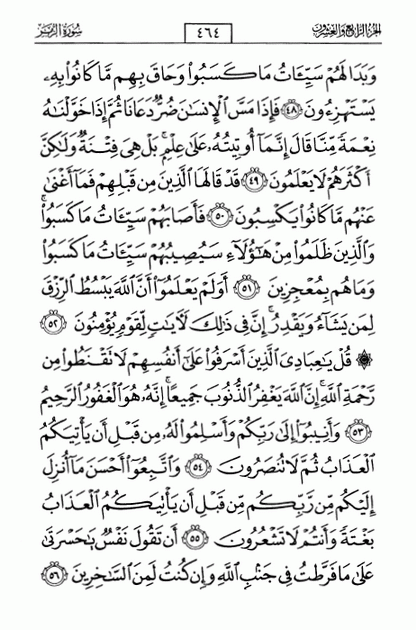 الجزء الرابع والعشرون ٤٦٤ سورة الزمر
وَبَدَا لَهُمْ سَيِّئَاتُ مَا كَسَبُوا وَحَاقَ بِهِم مَّا كَانُوا بِهِ
يَسْتَهْزِءُونَ ٤٨ فَإِذَا مَسَّ الْإِنسَانَ ضُرٌّ دَعَانَا ثُمَّ إِذَا خَوَّلْنَاهُ
نِعْمَةً مِّنَّا قَالَ إِنَّمَا أُوتِيتُهُ عَلَى عِلْمٍ بَلْ هِيَ فِتْنَةٌ وَلَكِنَّ
أَكْثَرَهُمْ لَا يَعْلَمُونَ ٤٩ قَدْ قَالَهَا الَّذِينَ مِن قَبْلِهِمْ فَمَا أَغْنَى
عَنْهُم مَّا كَانُوا يَكْسِبُونَ ٥٠ فَأَصَابَهُمْ سَيِّئَاتُ مَا كَسَبُوا
وَالَّذِينَ ظَلَمُوا مِنْ هَؤُلَاءِ سَيُصِيبُهُمْ سَيِّئَاتُ مَا كَسَبُوا
وَمَا هُم بِمُعْجِزِينَ ٥١ أَوَلَمْ يَعْلَمُوا أَنَّ اللَّهَ يَبْسُطُ الرِّزْقَ
لِمَن يَشَاءُ وَيَقْدِرُ إِنَّ فِي ذَلِكَ لَآيَاتٍ لِّقَوْمٍ يُؤْمِنُونَ ٥٢
۞ قُلْ يَاعِبَادِيَ الَّذِينَ أَسْرَفُوا عَلَى أَنفُسِهِمْ لَا تَقْنَطُوا مِن
رَّحْمَةِ اللَّهِ إِنَّ اللَّهَ يَغْفِرُ الذُّنُوبَ جَمِيعًا إِنَّهُ هُوَ الْغَفُورُ الرَّحِيمُ
٥٣ وَأَنِيبُوا إِلَى رَبِّكُمْ وَأَسْلِمُوا لَهُ مِن قَبْلِ أَن يَأْتِيَكُمُ
الْعَذَابُ ثُمَّ لَا تُنصَرُونَ ٥٤ وَاتَّبِعُوا أَحْسَنَ مَا أُنزِلَ
إِلَيْكُم مِّن رَّبِّكُم مِّن قَبْلِ أَن يَأْتِيَكُمُ الْعَذَابُ
بَغْتَةً وَأَنتُمْ لَا تَشْعُرُونَ ٥٥ أَن تَقُولَ نَفْسٌ يَاحَسْرَتَى
عَلَى مَا فَرَّطتُ فِي جَنبِ اللَّهِ وَإِن كُنتُ لَمِنَ السَّاخِرِينَ ٥٦